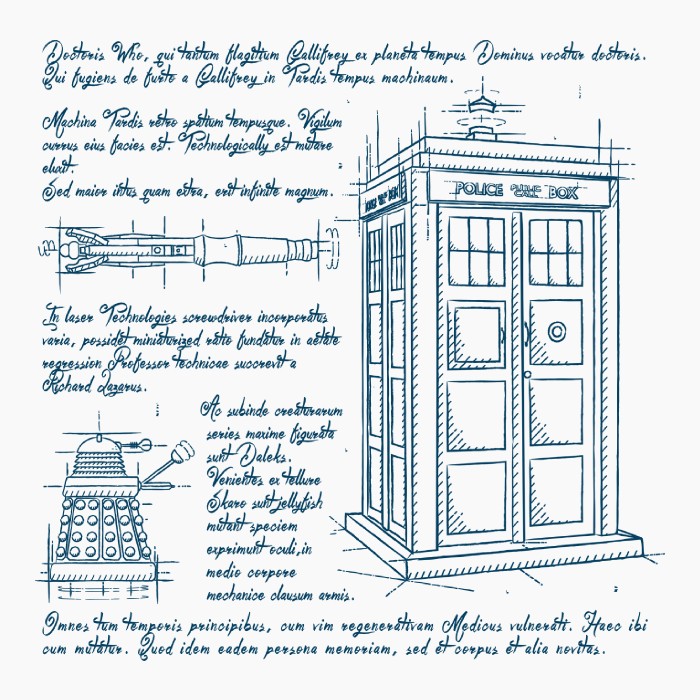 Doctoris Who, qui tantum flagitium Gallifrey ex planeta tempus Dominus vocatur doctoris.
Qui fugiens de furto a Gallifrey in Tardis tempus machinaum.
Machina Tardis retro spatium tempusque. Vigilum
currus eius facies est. Technologically est mutare
eluxit.
Sed maior intus quam extra, erit infinite magnum.
POLICE PUBLIC CALL BOX
POLICE BOX
In laser Technologies screwdriver incorporatus
varia, possidet miniaturized ratio fundatur in aetate
regression Professor technicae succrevit a
Richard Lazarus.
Ac subinde creaturarum
series maxime figurata
sunt Daleks.
Venientes ex tellure
Skaro sunt jellyfish
mutant speciem
exprimunt oculi,in
medio corpore
mechanice clausum armis.
Omnes tum temporis principibus, cum vim regenerativam Medicus vulnerati. Haec ibi
cum mutatur. Quod idem eadem persona memoriam, sed et corpus et alia novitas.